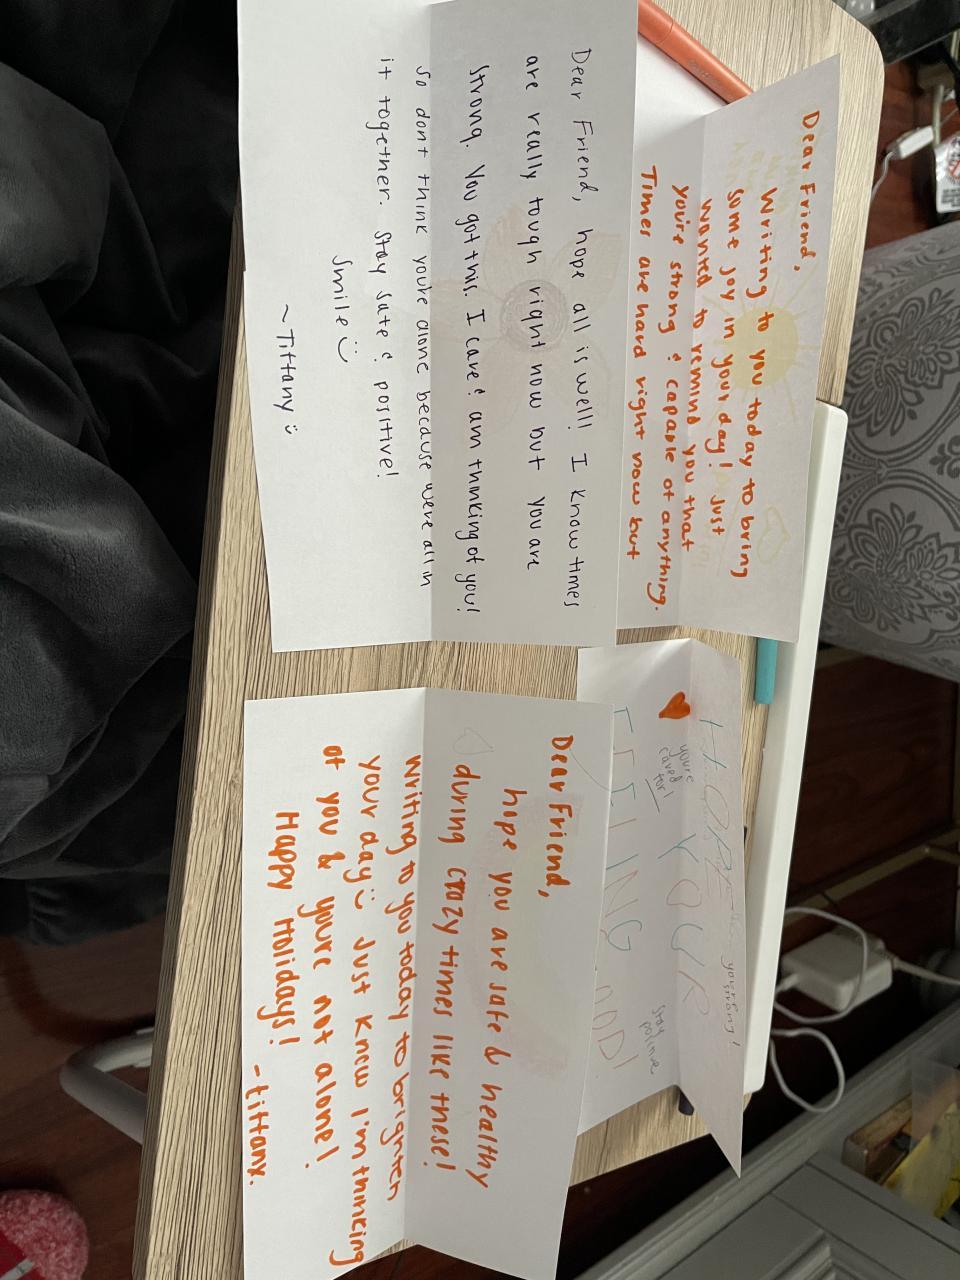 Dear Friend,
Writing to you today to bring
some joy in your day! Just
wanted to remind you that
you're strong & capable of anything.
Times are hard right now but
Dear Friend, hope all is well! I know times
are really tough right now but you are
strong. You got this. I care & am thinking of you!
So dont think you're alone because we're all in
it together. Stay safe & positive!
Smile
~Tiffany
HOPE
you're
strong!
YOUR
you're
cared
for!
FEELING
stay
positive
Dear Friend,
hope you are safe & healthy
during crazy times like these!
Writing to you today to brighten
your day Just know I'm thinking
of you & you're not alone!
Happy Holidays!
-tiffany.